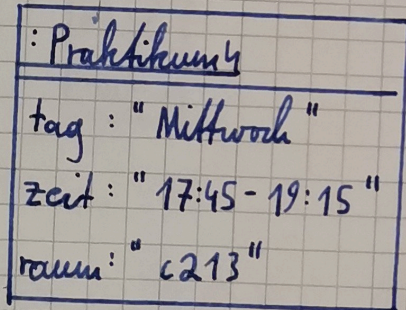 : Praktikum4
tag : " Mittwoch "
zeit : " 17:45 - 19:15 "
raum : " c213 "